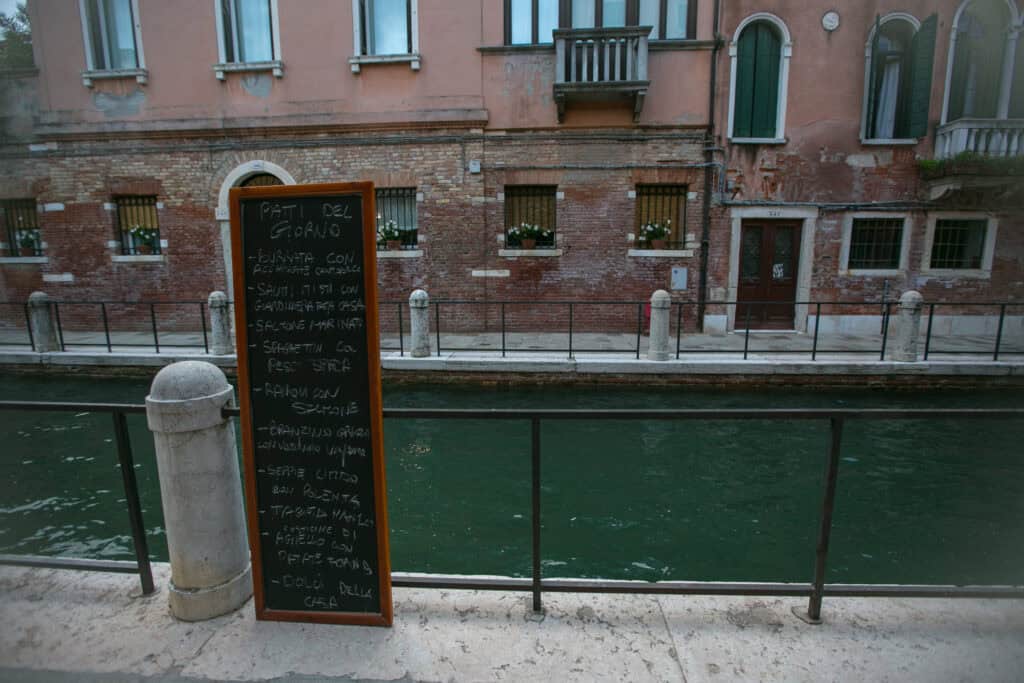 PIATTI DEL
GIORNO
- BURRATA CON
ACCIUGHE
- SALUMI MISTI CON
GIARDINIERA DELLA CASA
- SALMONE MARINATO
- SPAGHETTI COL
PESCE SPADA
- RAVIOLI CON
SALMONE
- BRANZINO
CON
- SEPPIE
CON POLENTA
- TAGLIATA MANZO
- COSTICINE DI
AGNELLO CON
PATATE FORNO
- DOLCI DELLA
CASA